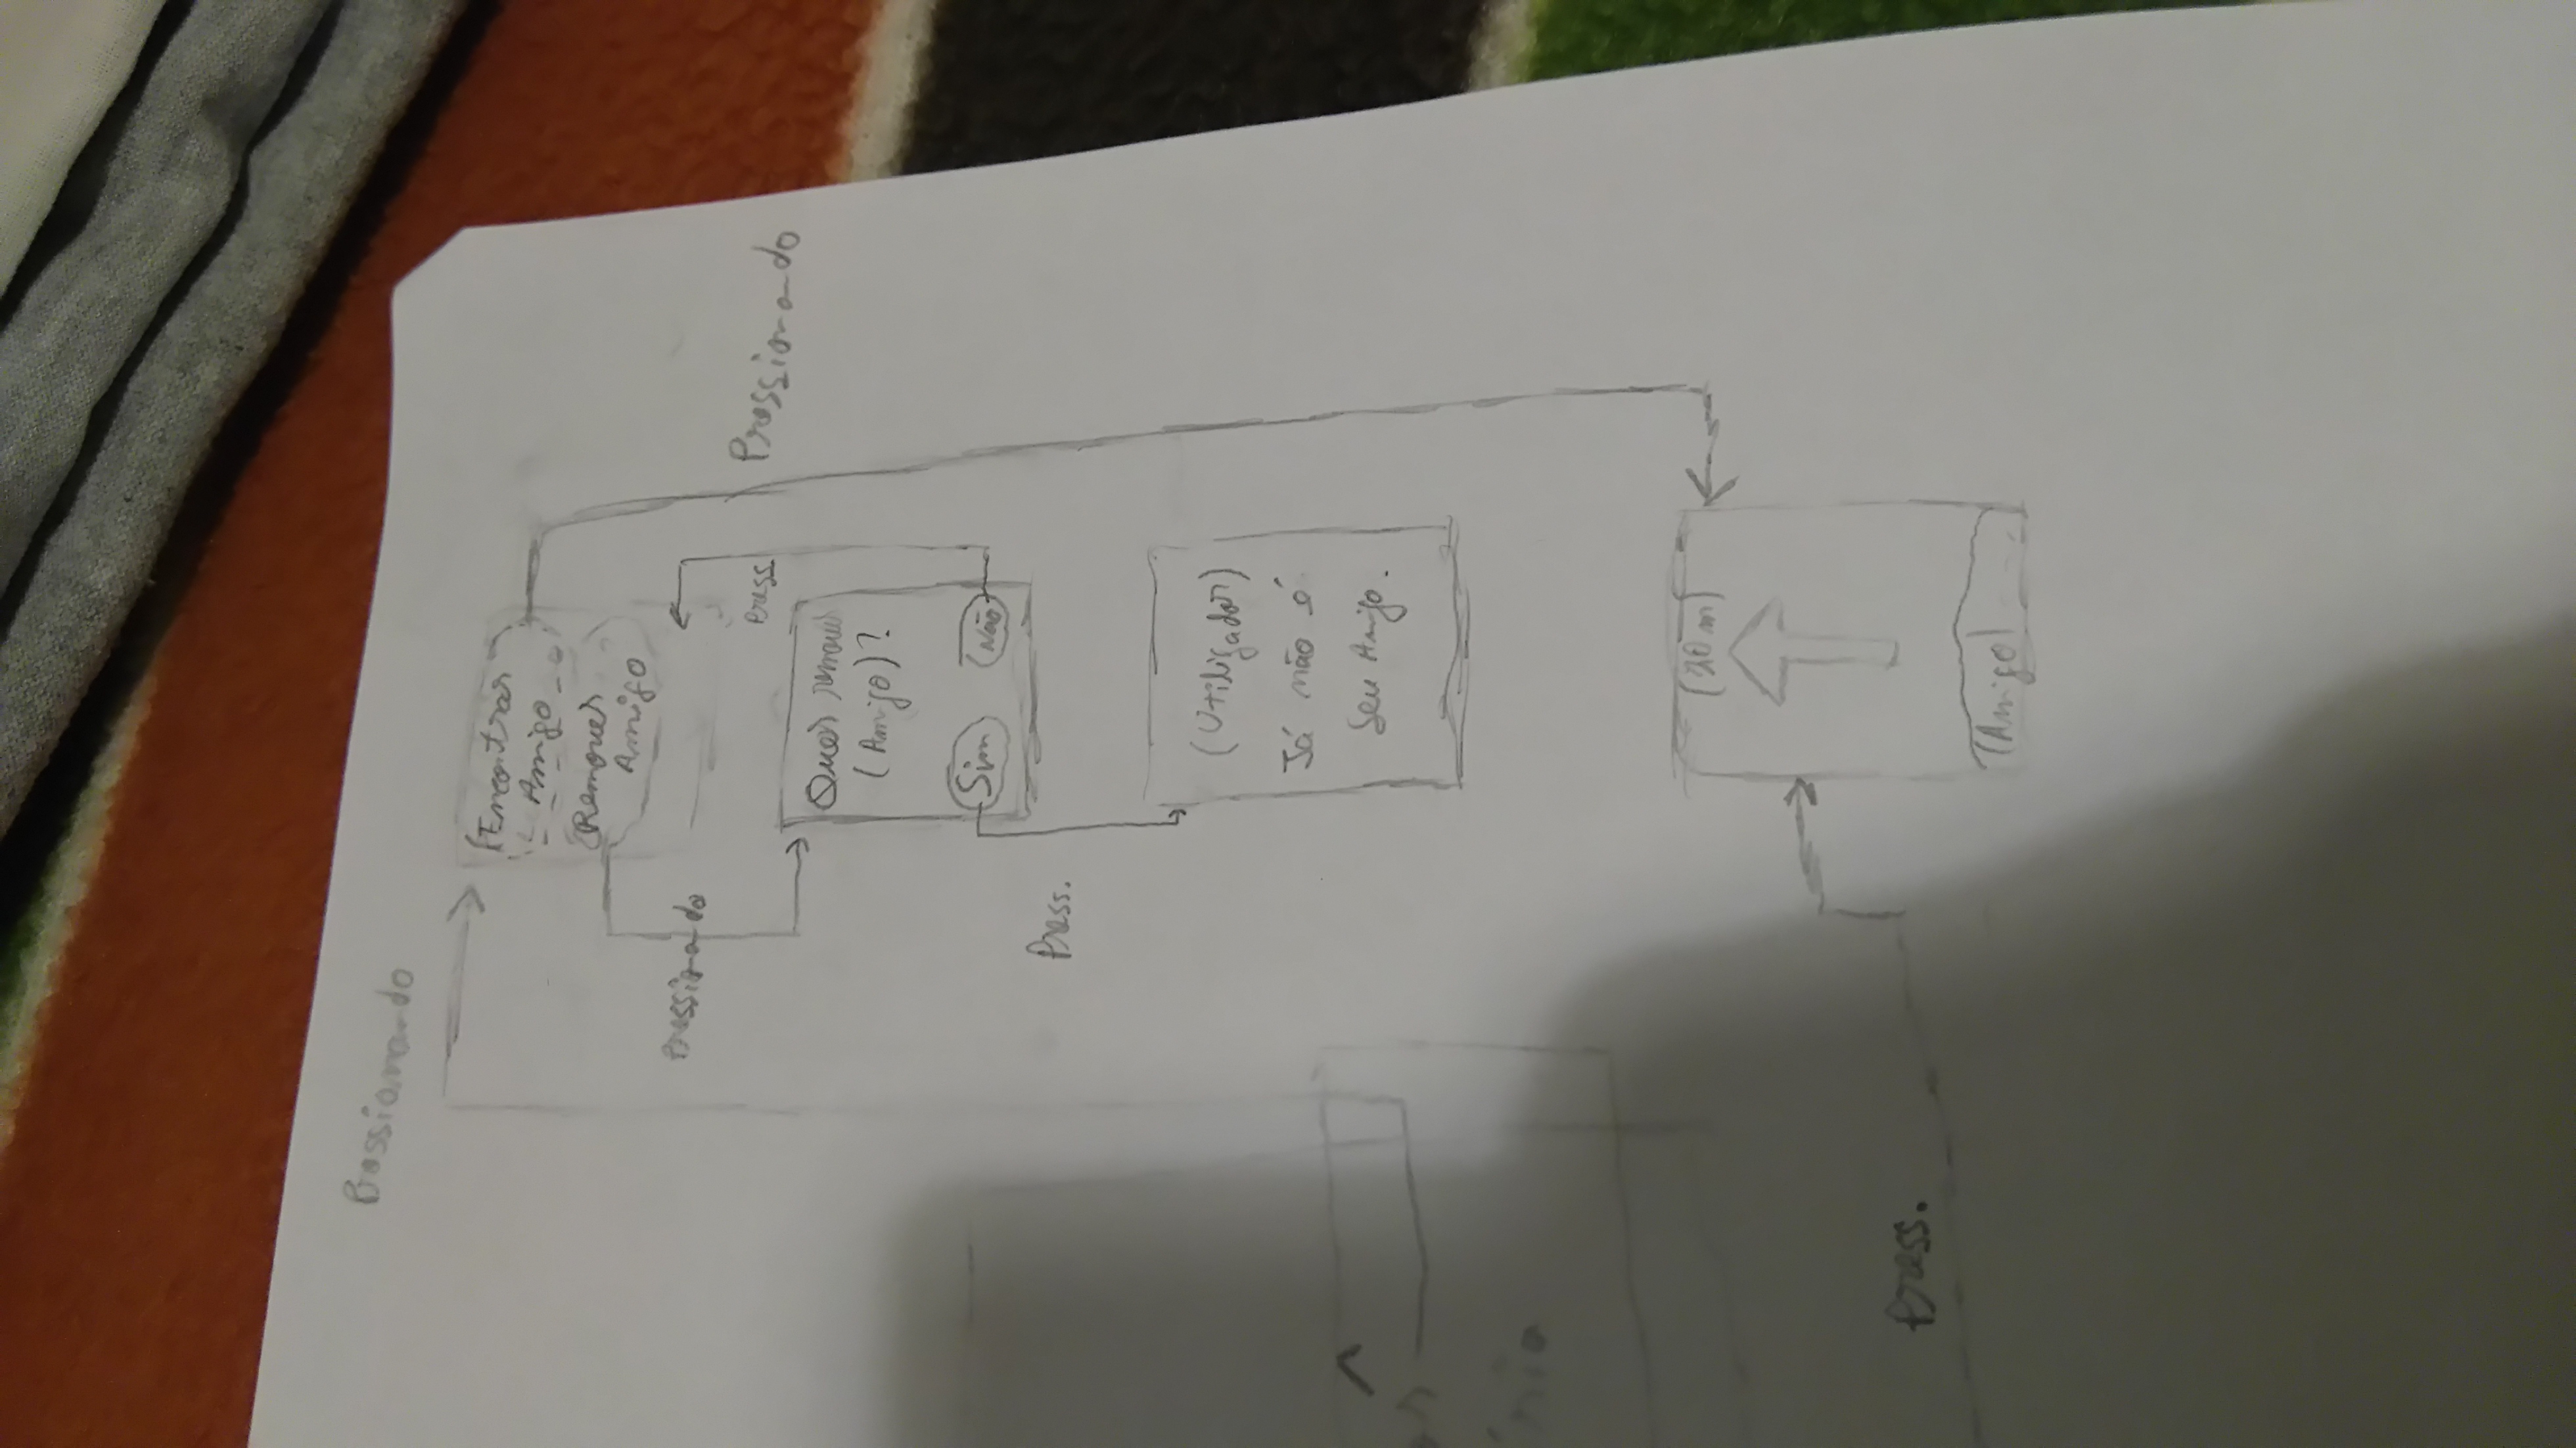 Pressionando
(Encontrar
Amigo
(Remover
Amigo
Pressionando
Press.
Pressionando
Quer remover
(Amigo)?
Sim
Não
Press.
(Utilizador)
Já não é
Seu Amigo.
(20 m)
Press.
(Amigo)